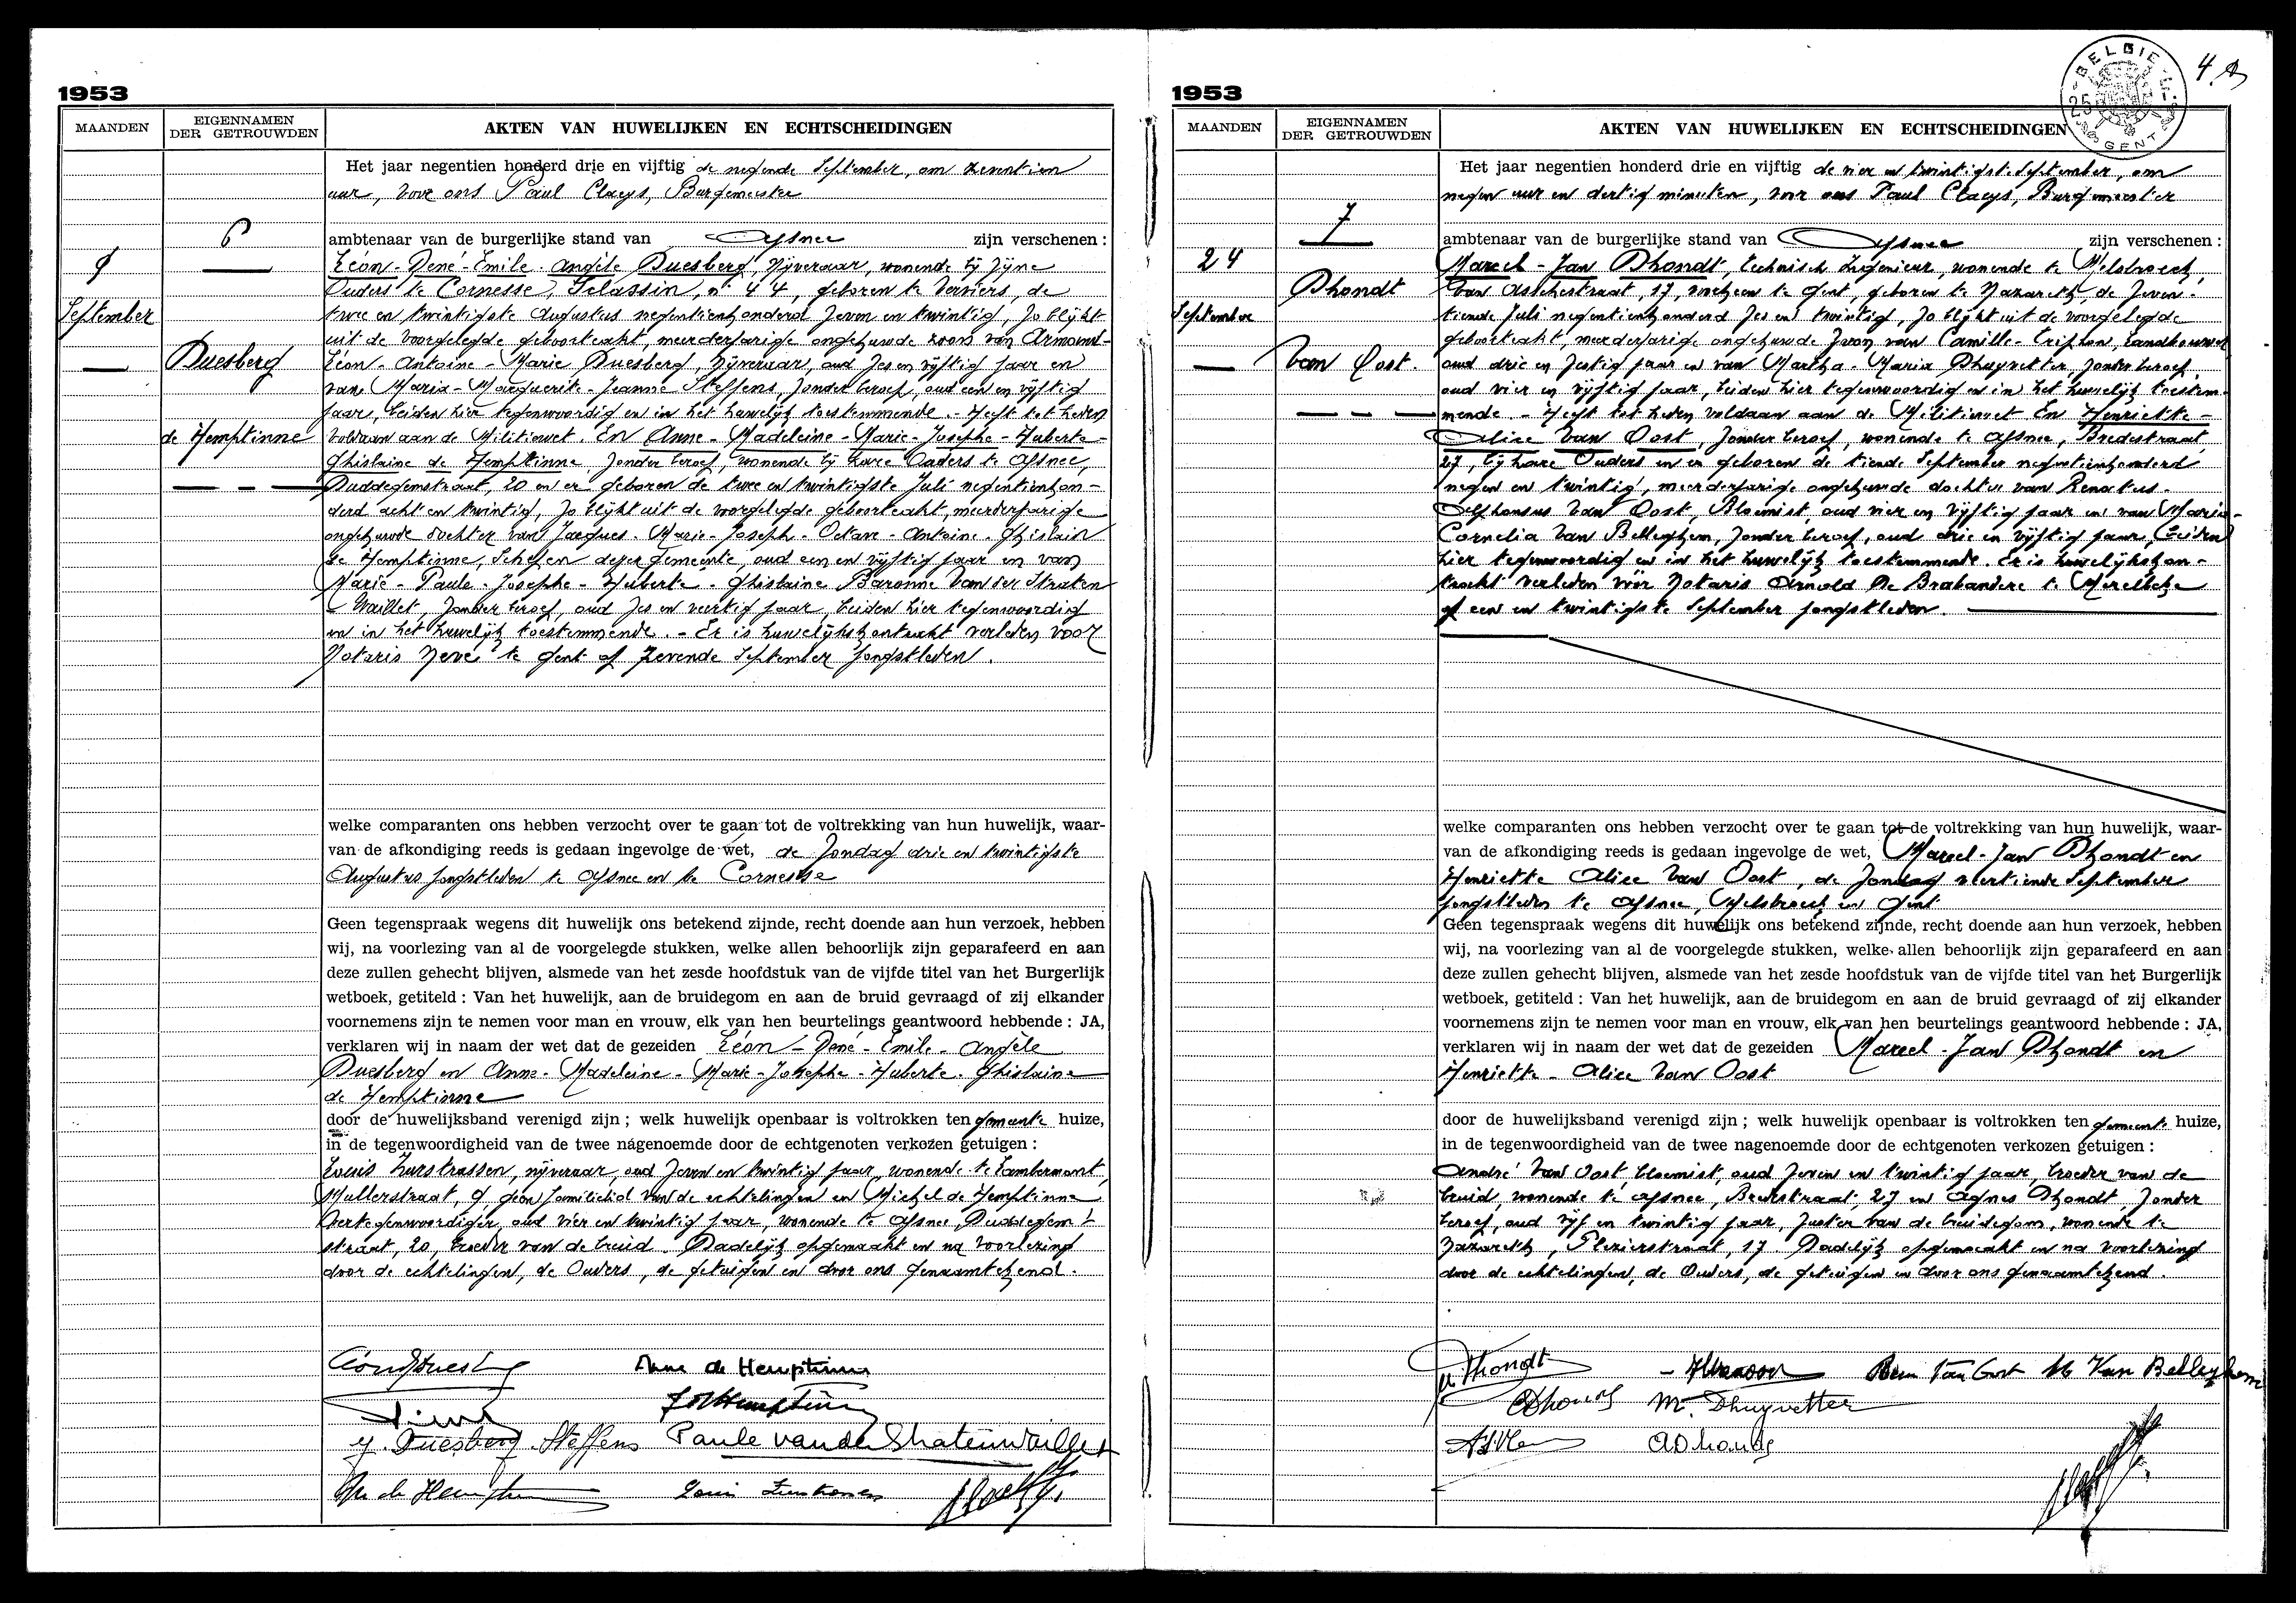 1953
MAANDEN
EIGENNAMEN
DER GETROUWDEN
AKTEN VAN HUWELIJKEN EN ECHTSCHEIDINGEN
6
9
September
Duesberg
de Hemptinne
Het jaar negentien honderd drie en vijftig de negende September, om zeventien
uur, voor ons Paul Claeys, Burgemeester
ambtenaar van de burgerlijke stand van Afsnee zijn verschenen :
Léon - René - Emile - Angèle Duesberg, nijveraar, wonende bij zijne
Ouders te Cornesse, Selassin, n° 44, geboren te Verviers, de
twee en twintigste Augustus negentienhonderd zeven en twintig, zo blijkt
uit de voorgelegde geboorteakt, meerderjarige ongehuwde zoon van Armand-
Léon - Antoine - Marie Duesberg, nijveraar, oud zes en vijftig jaar en
van Maria - Marguerite - Jeanne Steffens, zonder beroep, oud een en vijftig
jaar, beiden hier tegenwoordig en in het huwelijk toestemmende. - Heeft tot heden
voldaan aan de Militiewet. En Anne - Madeleine - Marie - Josephe - Huberte -
Ghislaine de Hemptinne, zonder beroep, wonende bij hare Ouders te Afsnee,
Duddegemstraat, 20 en er geboren de twee en twintigste Juli negentienhon-
derd acht en twintig, zo blijkt uit de voorgelegde geboorteakt, meerderjarige
ongehuwde dochter van Jacques - Marie - Joseph - Octave - Antoine - Ghislain
de Hemptinne, Schepen dezer gemeente, oud een en vijftig jaar en van
Marie - Paule - Josephe - Huberte - Ghislaine Baronne Van der Straten
Waillet, zonder beroep, oud zes en veertig jaar, beiden hier tegenwoordig
en in het huwelijk toestemmende. - Er is huwelijkskontrakt verleden voor
Notaris Neve te Gent op zevende September jongstleden.
welke comparanten ons hebben verzocht over te gaan tot de voltrekking van hun huwelijk, waar-
van de afkondiging reeds is gedaan ingevolge de wet, de Zondag drie en twintigste
Augustus jongstleden te Afsnee en te Cornesse
Geen tegenspraak wegens dit huwelijk ons betekend zijnde, recht doende aan hun verzoek, hebben
wij, na voorlezing van al de voorgelegde stukken, welke allen behoorlijk zijn geparafeerd en aan
deze zullen gehecht blijven, alsmede van het zesde hoofdstuk van de vijfde titel van het Burgerlijk
wetboek, getiteld : Van het huwelijk, aan de bruidegom en aan de bruid gevraagd of zij elkander
voornemens zijn te nemen voor man en vrouw, elk van hen beurtelings geantwoord hebbende : JA,
verklaren wij in naam der wet dat de gezeiden Léon - René - Emile - Angèle
Duesberg en Anne - Madeleine - Marie - Josephe - Huberte - Ghislaine
de Hemptinne
door de huwelijksband verenigd zijn ; welk huwelijk openbaar is voltrokken ten gemeente huize,
in de tegenwoordigheid van de twee nagenoemde door de echtgenoten verkozen getuigen :
Louis Zurstrassen, nijveraar, oud zeven en twintig jaar, wonende te Lambermont,
Mullerstraat, 9, geen familielid van de echtelingen en Michel de Hemptinne
Vertegenwoordiger, oud vier en twintig jaar, wonende te Afsnee, Duddegem-
straat, 20, broeder van de bruid. Dadelijk opgemaakt en na voorlezing
door de echtelingen, de Ouders, de getuigen en door ons genaamtekend.
Léon Duesberg Anne de Hemptinne
J de Hemptinne
Duesberg Steffens Paule van der Straten Waillet
de Hemptinne Louis Zurstrassen
1953
BELGIE
GENT
4
MAANDEN
EIGENNAMEN
DER GETROUWDEN
AKTEN VAN HUWELIJKEN EN ECHTSCHEIDINGEN
7
24
September
Dhondt
Van Oost.
Het jaar negentien honderd drie en vijftig de vier en twintigste September, om
negen uur en dertig minuten, voor ons Paul Claeys, Burgemeester
ambtenaar van de burgerlijke stand van Afsnee zijn verschenen :
Marcel - Jan Dhondt, technisch Ingenieur, wonende te Melsbroeck,
Van Asschestraat, 17, voorheen te Gent, geboren te Nazareth, de zeven-
tiende Juli negentienhonderd zes en twintig, zo blijkt uit de voorgelegde
geboorteakt, meerderjarige ongehuwde zoon van Camille - Triphon, Landbouwer
oud drie en zestig jaar en van Martha - Maria Dhuyvetter, zonder beroep,
oud vier en vijftig jaar, beiden hier tegenwoordig en in het huwelijk toestem-
mende. - Heeft tot heden voldaan aan de Militiewet. En Henriette -
Alice Van Oost, zonder beroep, wonende te Afsnee, Bredestraat,
27, bij hare Ouders en er geboren de tiende September negentienhonderd
negen en twintig, meerderjarige ongehuwde dochter van Renatus -
Alphonsus Van Oost, Bloemist, oud vier en vijftig jaar en van Maria -
Cornelia Van Belleghem, zonder beroep, oud drie en vijftig jaar, beiden
hier tegenwoordig en in het huwelijk toestemmende. Er is huwelijkskon-
trakt verleden voor Notaris Arnold De Brabandere te Merelbeke
op een en twintigste September jongstleden.
welke comparanten ons hebben verzocht over te gaan tot de voltrekking van hun huwelijk, waar-
van de afkondiging reeds is gedaan ingevolge de wet, Marcel - Jan Dhondt en
Henriette Alice Van Oost, de Zondag dertiende September
jongstleden te Afsnee, Melsbroeck en Gent
Geen tegenspraak wegens dit huwelijk ons betekend zijnde, recht doende aan hun verzoek, hebben
wij, na voorlezing van al de voorgelegde stukken, welke allen behoorlijk zijn geparafeerd en aan
deze zullen gehecht blijven, alsmede van het zesde hoofdstuk van de vijfde titel van het Burgerlijk
wetboek, getiteld : Van het huwelijk, aan de bruidegom en aan de bruid gevraagd of zij elkander
voornemens zijn te nemen voor man en vrouw, elk van hen beurtelings geantwoord hebbende : JA,
verklaren wij in naam der wet dat de gezeiden Marcel - Jan Dhondt en
Henriette - Alice Van Oost
door de huwelijksband verenigd zijn ; welk huwelijk openbaar is voltrokken ten gemeente huize,
in de tegenwoordigheid van de twee nagenoemde door de echtgenoten verkozen getuigen :
André Van Oost, bloemist, oud zeven en twintig jaar, broeder van de
bruid, wonende te Afsnee, Bredestraat, 27 en Agnes Dhondt, zonder
beroep, oud vijf en twintig jaar, zuster van de bruidegom, wonende te
Nazareth, Plezierstraat, 17. Dadelijk opgemaakt en na voorlezing
door de echtelingen, de Ouders, de getuigen en door ons genaamtekend.
Dhondt Van Oost M Van Belleghem
Dhondt M. Dhuyvetter
ADhondt